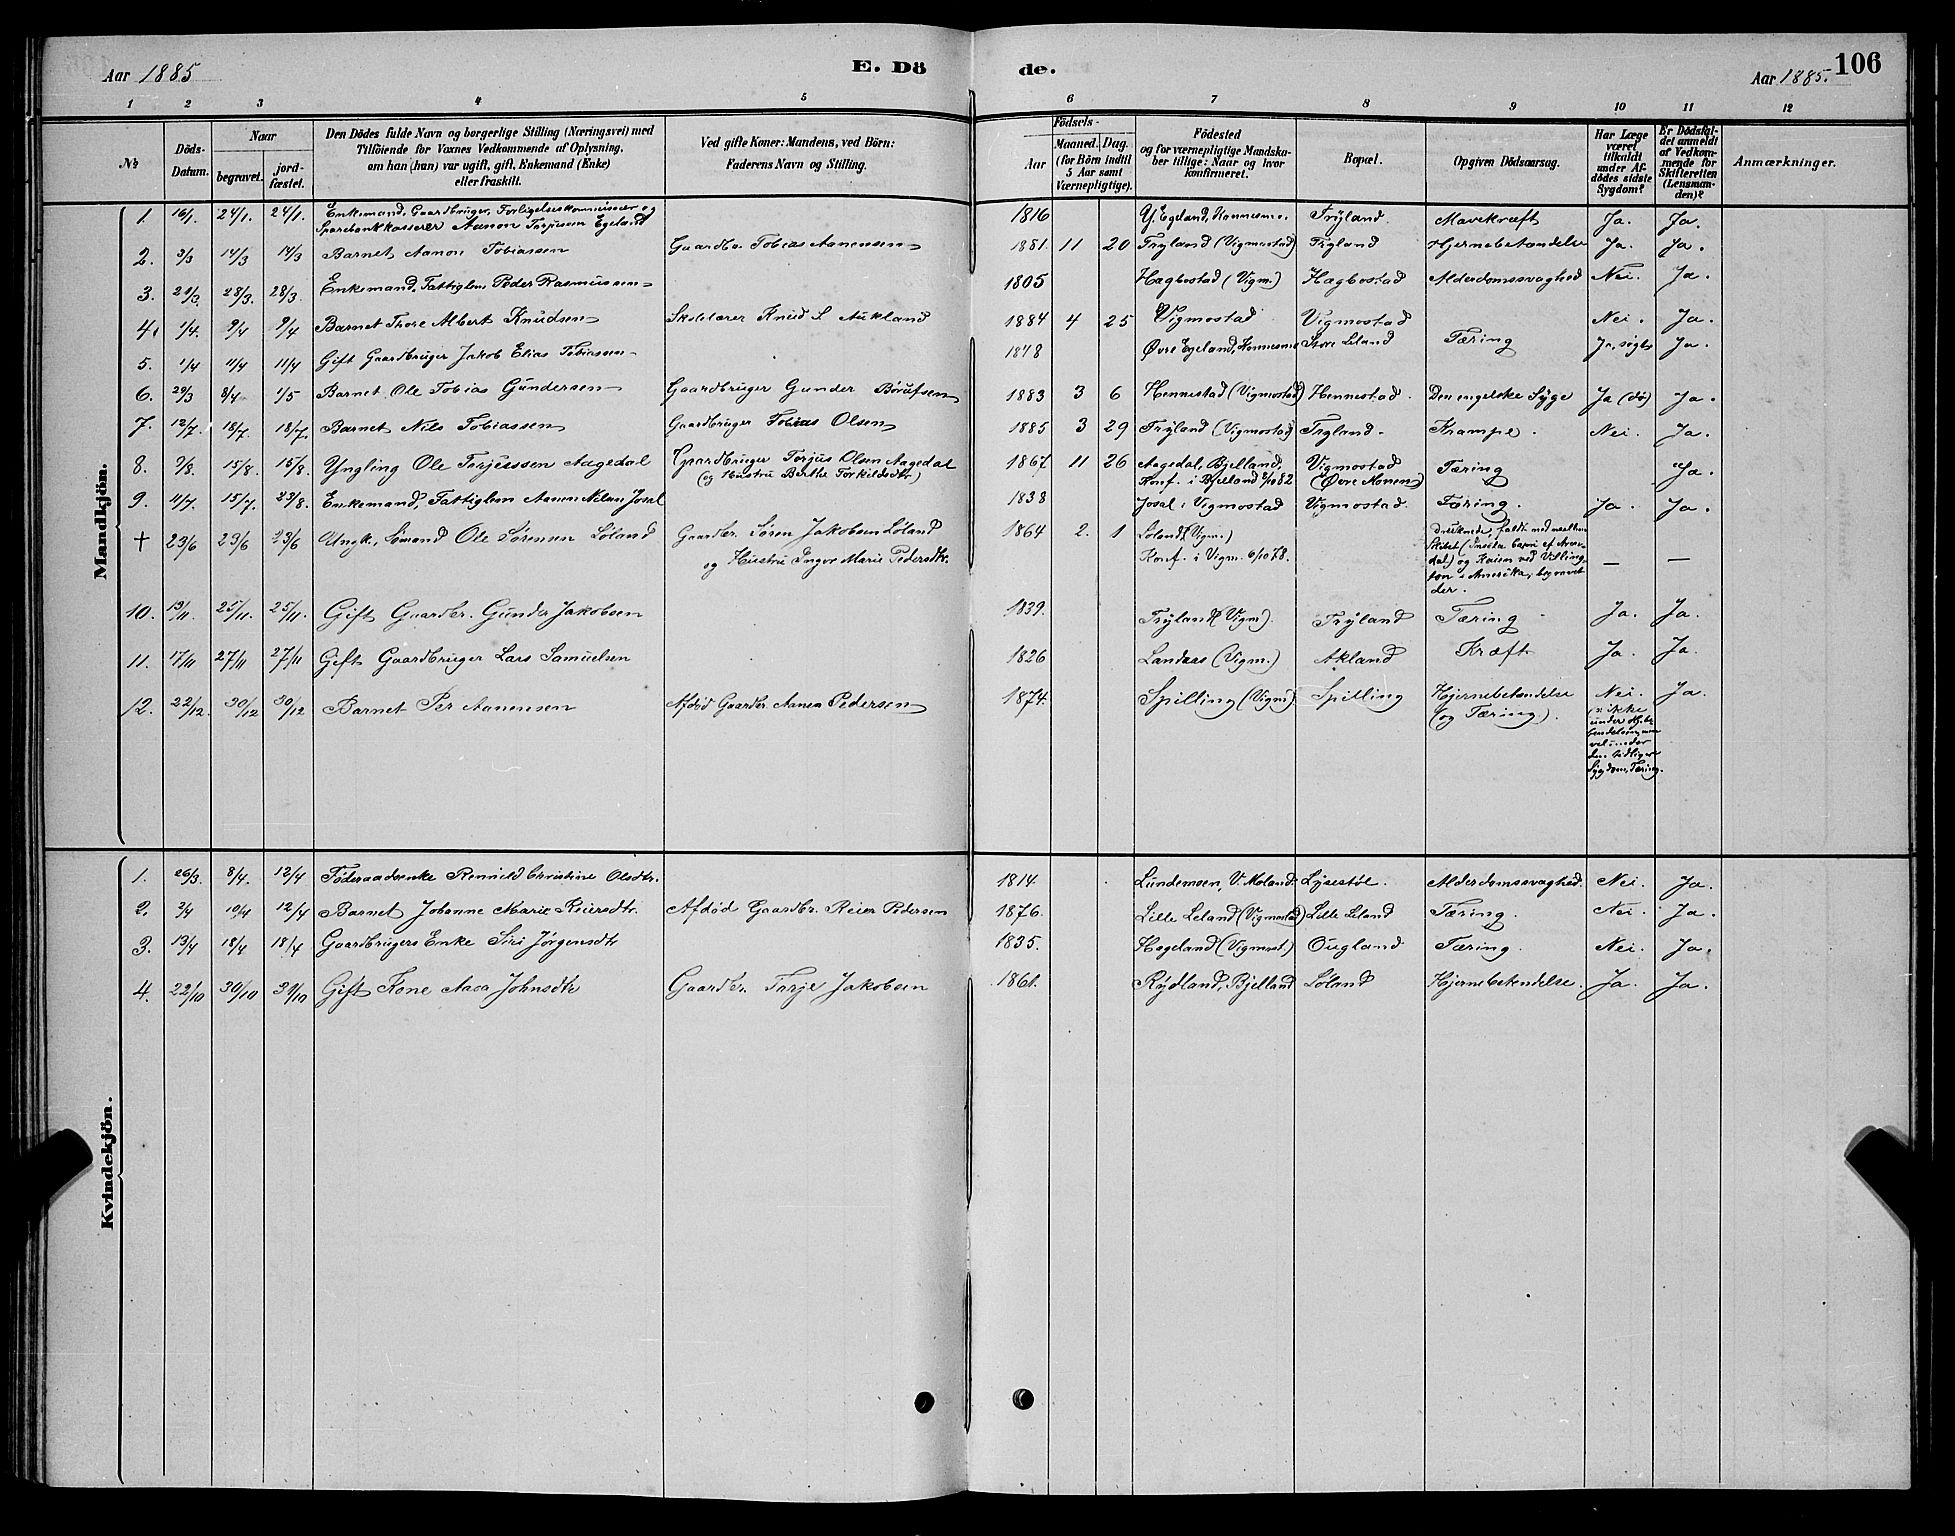 Aar 1885
E. Dö
de.
Aar 1885.
106
1 2 3 4 5 6 7 8 9 10 11 12
No
Döds-Datum.
Naar
begravet.
jord-fæstet.
Den Dödes fulde Navn og borgerlige Stilling (Næringsvei) med
Tilföiende for Voxnes Vedkommende af Oplysning,
om han (hun) var ugift, gift, Enkemand (Enke)
eller fraskilt.
Ved gifte Koner: Mandens, ved Börn:
Faderens Navn og Stilling.
Födsels-
Aar
Maaned. Dag.
(for Börn indtil
5 Aar samt
Værnepligtige).
Födested
og for værnepligtige Mandska-
ber tillige: Naar og hvor
konfirmeret.
Bopæl.
Opgiven Dödsaarsag.
Har Læge
været
tilkaldt
under Af-
dödes sidste
Sygdom?
Er Dödsfal-
det anmeldt
af Vedkom-
mende for
Skifteretten
(Lensman-
den)?
Anmærkninger.
Mandkjön.
1. 16/1. 24/1. 24/1. Enkemand, Gaardbruger, Forligelseskommissær og
Sparebankkasserer Aanon Torjusen Egeland 1816 Y. Egeland, Konnesmo. Tryland. Mavekræft Ja. Ja.
2. 3/3 14/3 14/3 Barnet Aanon Tobiassen Gaardbr. Tobias Aanensen 1881. 11 20 Tryland (Vigmostad) Tryland Hjernebetændelse Ja. Ja.
3. 21/3 28/3. 28/3. Enkemand, Fattiglem Peder Rasmussen 1805 Hægbostad (Vigm.) Hægbostad Alderdomssvaghed Nei. Ja.
4. 1/4. 9/4 9/4 Barnet Thore Albert Knudsen Skolelærer Knud S. Aukland 1884 4 25 Vigmostad Vigmostad Nei. Ja.
5. 1/4 11/4 11/4 Gift Gaardbruger Jakob Elias Tobiassen 1848 Øvre Egeland, Konnesmo Store Leland Tæring Ja, sigts Ja.
6. 29/3 8/4. 1/5 Barnet Ole Tobias Gundersen Gaardbruger Gunder Børufsen 1883 3 6 Hennestad (Vigmostad) Hennestad. Den engelske Syge Ja (do) Ja.
7. 12/7. 18/7 18/7. Barnet Nils Tobiassen Gaardbruger Tobias Olsen 1885 3 29 Tryland (Vigmostad) Tryland. Krampe. Nei. Ja.
8. 9/8. 15/8. 15/8. Yngling Ole Torjussen Aagedal Gaardbruger Torjus Olsen Aagedal
(og Hustru Berthe Torkildsdtr.) 1867 11 26 Aagedal, Bjelland, Vigmostad Tæring Ja.
Konf. i Bjelland 82 (Øvre Monen)
9. 11/7. 15/7. 23/8. Enkemand, Fattiglem Aanen Nilsen Josal 1838 Josal i Vigmostad Vigmostad. Tæring. Ja. Ja.
† 23/6 23/6 23/6 Ungk., Sømand Ole Sørensen Løland Gaardbr. Søren Jakobsen Løland
og Hustru Inger Marie Pedersdtr. 1864 2. 1 Løland (Vigm.)
Konf. i Vigm. 6/10 78.
Druknede, faldt ned mellem
Skibet ( af Aren-
dal) og Kaien ved Villing-
ton i Amerika, begravet
der. — —
10. 19/11. 25/11. 25/11. Gift Gaardbr. Gunder Jakobsen 1839. Tryland (Vigm). Tryland Tæring Ja. Ja.
11. 17/11 27/11 27/11 Gift Gaardbruger Lars Samuelsen 1826 Landaas (Vigm.) Akland Kræft Ja. Ja.
12. 22/12. 30/12 30/12 Barnet Per Aanensen Afdød Gaardbr. Aanen Pedersen 1874. Spilling (Vigm) Spilling Hjernebetændelse
(og Tæring). Nei. Ja.
ikke
under
vel under
den tidligere
Sygdom, Tæring.
Kvindekjön.
1. 26/3. 8/4. 12/4 Føderaadsenke Renveld Christine Olsdtr. 1814. Lundemoen, V. Moland. Lysestøl. Alderdomssvaghed. Nei. Ja.
2. 3/4 10/4 12/4 Barnet Johanne Marie Reiersdtr. Afdød Gaardbr. Reier Pedersen 1876. Lille Leland (Vigmostad) Lille Leland Tæring. Nei. Ja.
3. 13/4 18/4 18/4 Gaardbrugers Enke Siri Jørgensdtr 1835. Høgeland (Vigmost.) Ougland Tæring. Nei. Ja.
4. 22/10 30/10 30/10 Gift Kone Aasa Johnsdtr Gaardbr. Tarje Jakobsen 1861. Rydland, Bjelland Løland Hjernebetændelse. Ja. Ja.